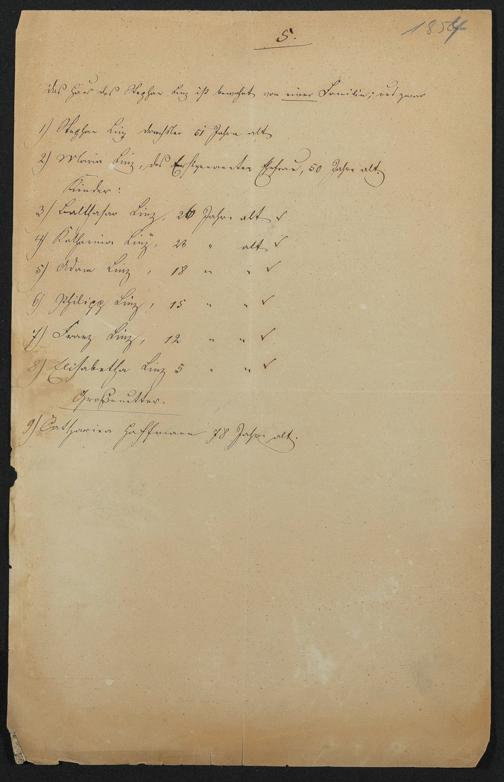 5.
1854
Das Haus des Stephan Linz ist bewohnt von einer Familie; und zwar
1) Stephan Linz 51 Jahre alt
2) Maria Linz, des Erstgenannten Ehefrau, 50 Jahre alt
Kinder:
3) Balthasar Linz, 26 Jahre alt ✓
4) Katharina Linz, 23 " alt ✓
5) Adam Linz, 18 " " ✓
6) Philipp Linz, 15 " " ✓
7) Franz Linz, 12 " " ✓
8) Elisabetha Linz 5 " " ✓
Großmutter.
9) Catharina Hoffmann 78 Jahre alt.